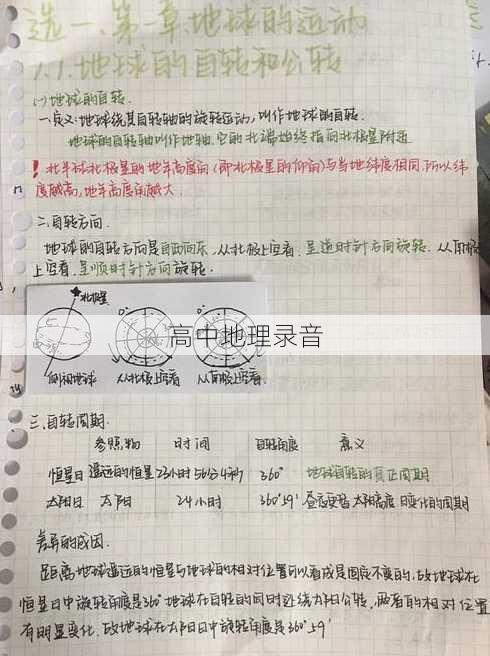 选一、第一章.地球的运动
1.1.地球的自转和公转
(一)地球的自转.
一.定义:地球绕其自转轴的旋转运动,叫作地球的自转.
地球的自转轴叫作地轴.它的北端始终指向北极星附近
！北半球北极星的地平高度角(即北极星的仰角)与当地纬度相同.所以纬
度越高,地平高度角越大.
二.自转方向.
地球的自转方向是自西向东.从北极上空看,呈逆时针方向旋转.从南极
上空看.呈顺时针方向旋转.
北极星
0°
0°
高中地理录音
侧视地球
从北极上空看
从南极上空看.
三.自转周期.
参照物 时间 自转角度 意义
恒星日 遥远的恒星 23小时56分4秒 360° 地球自转的真正周期
太阳日 太阳 24小时 360°59' 昼夜更替 太阳高度 日变化的周期
差异的成因.
距离地球遥远的恒星与地球的相对位置可以看成是固定不变的,故地球在
恒星日中旋转角度是360°地球在自转的同时还绕太阳公转,两者的相对位置
有明显变化.故地球在太阳日中旋转角度是360°59'